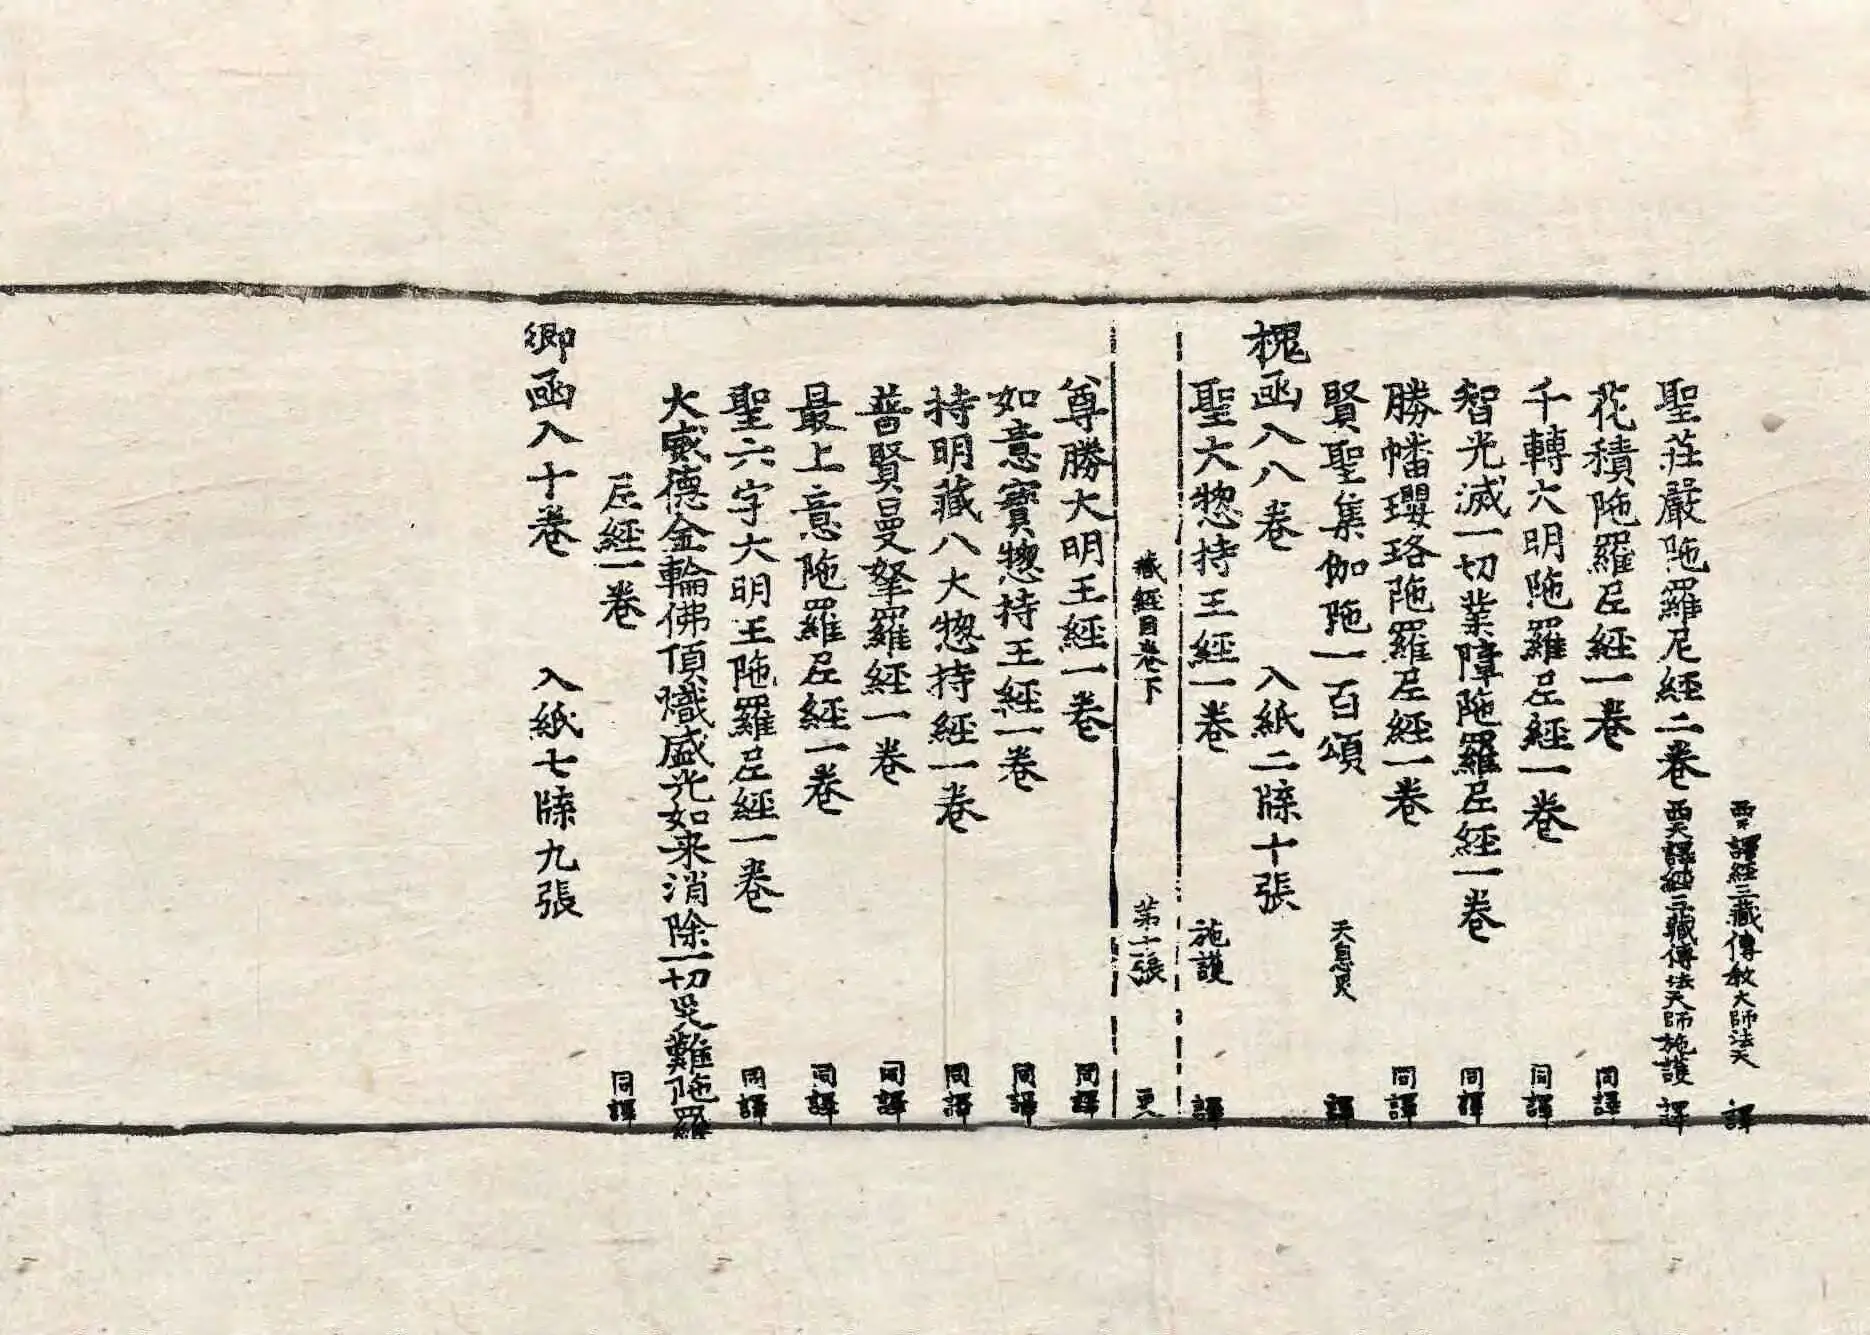 西天譯經三藏傳教大師法天 譯
聖莊嚴陁羅尼經二卷 西天譯經三藏傳法大師施護 譯
花積陁羅尼經一卷 同譯
千轉大明陁羅尼經一卷 同譯
智光滅一切業障陁羅尼經一卷 同譯
勝幡瓔珞陁羅尼經一卷 同譯
賢聖集伽陁一百頌 天息災 譯
槐函入八卷 入紙二牒十張
聖大惣持王經一卷 施護 譯
藏經目卷下 第十一張 更
尊勝大明王經一卷 同譯
如意寶惣持王經一卷 同譯
持明藏八大惣持經一卷 同譯
普賢曼拏羅經一卷 同譯
最上意陁羅尼經一卷 同譯
聖六字大明王陁羅尼經一卷 同譯
大威德金輪佛頂熾盛光如來消除一切災難陁羅
尼經一卷 同譯
卿函入十卷 入紙七牒九張